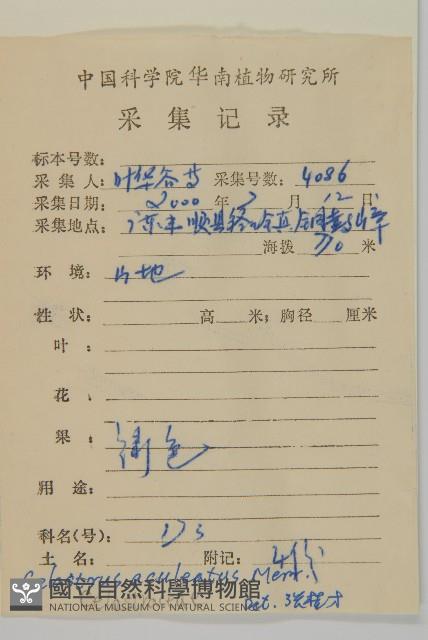 中国科学院华南植物研究所
采集记录
标本号数:
采集人:叶华谷等 采集号数:4086
采集日期:2000年7月12日
采集地点:广东丰顺县
海拨 70 米
环境:山地
性状: 高 米;胸径 厘米
叶:
花:
果:绿色
用途:
科名(号):173
土名: 附记:4份
Celastrus aculeatus Merr.
國立自然科學博物館
NATIONAL MUSEUM OF NATURAL SCIENCE
Det. 张桂才